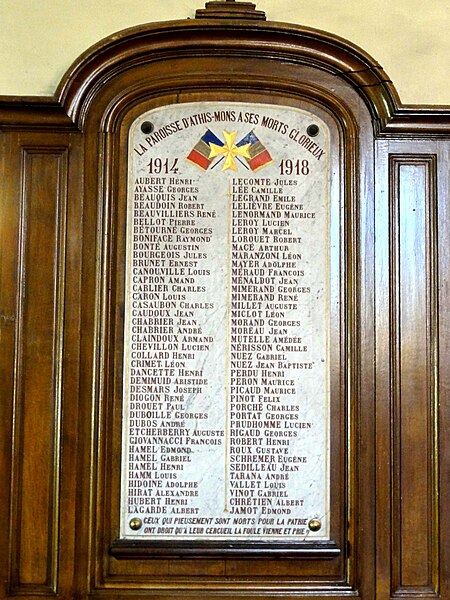 LA PAROISSE D'ATHIS-MONS A SES MORTS GLORIEUX
1914 1918
AUBERT HENRI
AYASSE GEORGES
BEAUQUIS JEAN
BEAUDOIN ROBERT
BEAUVILLIERS RENÉ
BELLOT PIERRE
BÉTOURNÉ GEORGES
BONIFACE RAYMOND
BONTÉ AUGUSTIN
BOURGEOIS JULES
BRUNET ERNEST
CANOUVILLE LOUIS
CAPRON AMAND
CARLIER CHARLES
CARON LOUIS
CASAUBON CHARLES
CAUDOUX JEAN
CHABRIER JEAN
CHABRIER ANDRÉ
CLAINDOUX ARMAND
CHEVILLON LUCIEN
COLLARD HENRI
CRIMET LÉON
DANCETTE HENRI
DEMIMUID ARISTIDE
DESMARS JOSEPH
DIOGON RENÉ
DROUET PAUL
DUBOILLE GEORGES
DUBOS ANDRÉ
ETCHERBERRY AUGUSTE
GIOVANNACCI FRANCOIS
HAMEL EDMOND
HAMEL GABRIEL
HAMEL HENRI
HAMM LOUIS
HIDOINE ADOLPHE
HIRAT ALEXANDRE
HUBERT HENRI
LAGARDE ALBERT
LECOMTE JULES
LÉE CAMILLE
LEGRAND EMILE
LELIÈVRE EUGÈNE
LENORMAND MAURICE
LEROY LUCIEN
LEROY MARCEL
LOROUET ROBERT
MACÉ ARTHUR
MARANZONI LÉON
MAYER ADOLPHE
MÉRAUD FRANCOIS
MÉNALDOT JEAN
MIMERAND GEORGES
MIMERAND RENÉ
MILLET AUGUSTE
MICLOT LÉON
MORAND GEORGES
MOREAU JEAN
MUTELLE AMÉDÉE
NÉRISSON CAMILLE
NUEZ GABRIEL
NUEZ JEAN BAPTISTE
PERDU HENRI
PERON MAURICE
PICAUD MAURICE
PINOT FELIX
PORCHÉ CHARLES
PORTAT GEORGES
PRUDHOMME LUCIEN
RIGAUD GEORGES
ROBERT HENRI
ROUX GUSTAVE
SCHREMER EUGÈNE
SEDILLEAU JEAN
TARANA ANDRÉ
VALLET LOUIS
VINOT GABRIEL
CHRÉTIEN ALBERT
JAMOT EDMOND
CEUX QUI PIEUSEMENT SONT MORTS POUR LA PATRIE
ONT DROIT QU'À LEUR CERCUEIL LA FOULE VIENNE ET PRIE